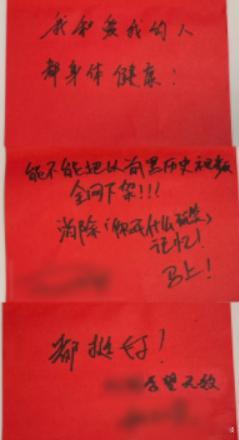 我和爱我的人
都身体健康！
能不能把以前黑历史
全网下架!!!
消除「你开什么玩笑」
记忆！
马上！
都挺好！